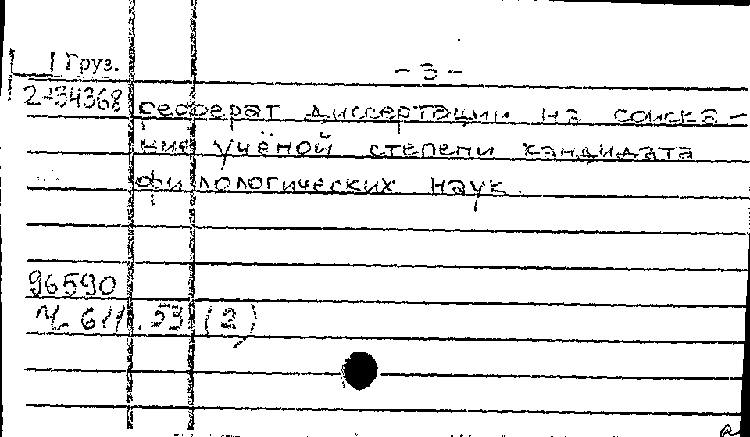 Груз.
- 3 -
2-34368
реферат диссертации на соиска-
ние учёной степени кандидата
филологических наук.
96590
611.53 (2)